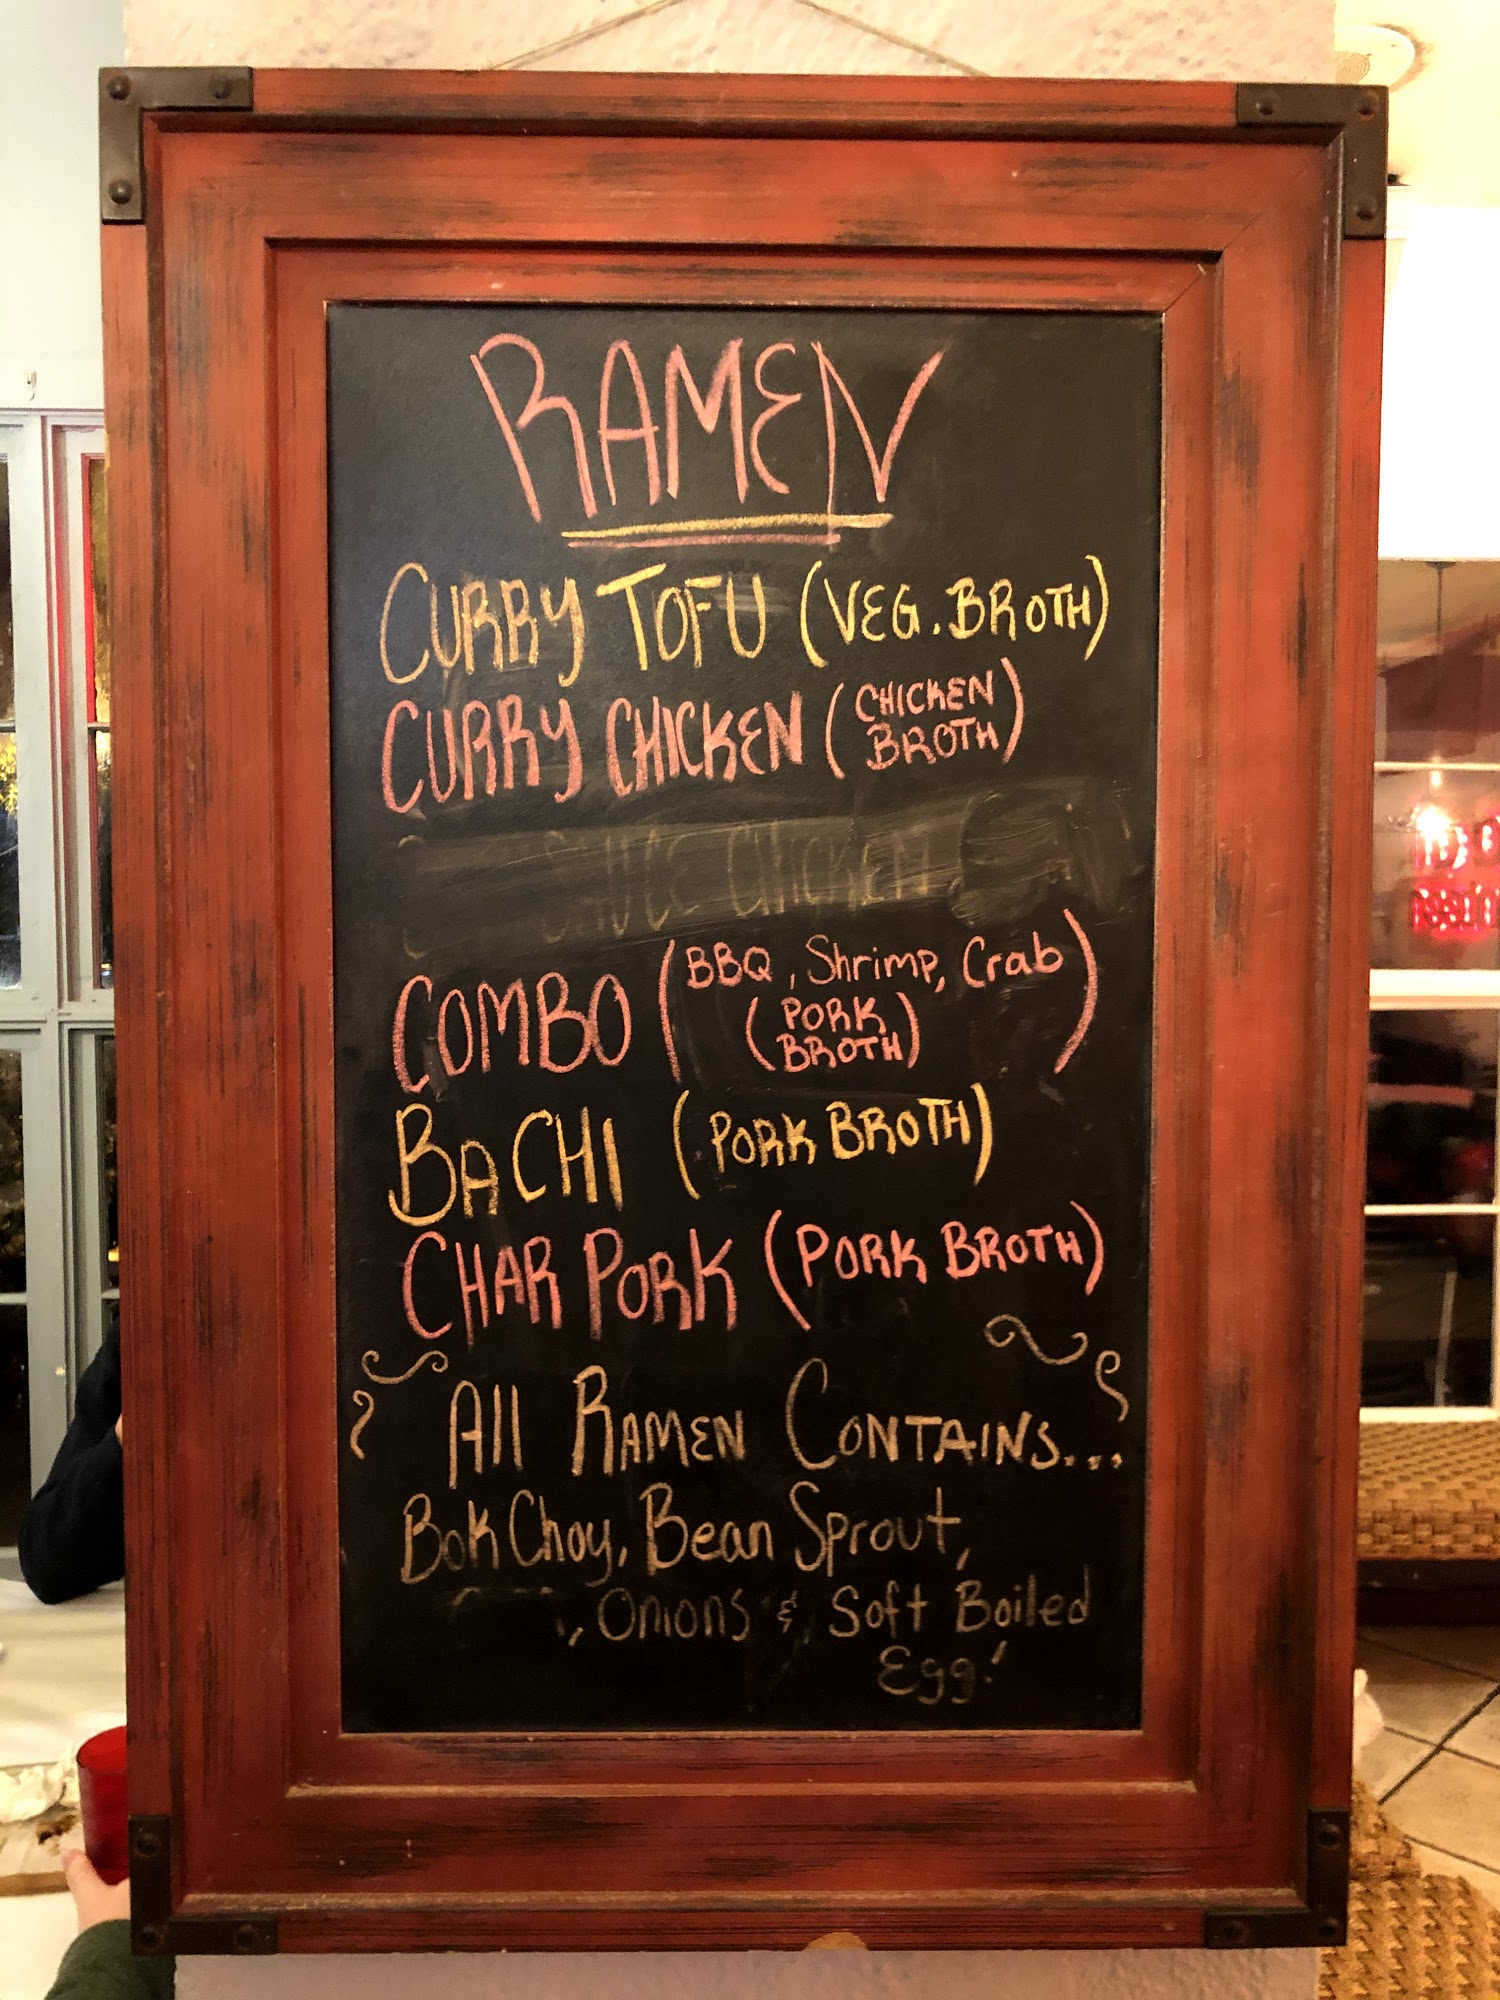 RAMEN
CURRY TOFU (VEG. BROTH)
CURRY CHICKEN (CHICKEN BROTH)
SAUCE CHICKEN
COMBO (BBQ, Shrimp, Crab
(PORK BROTH))
BACHI (PORK BROTH)
CHAR PORK (PORK BROTH)
All RAMEN CONTAINS...
Bok Choy, Bean Sprout,
, Onions & Soft Boiled
Egg!